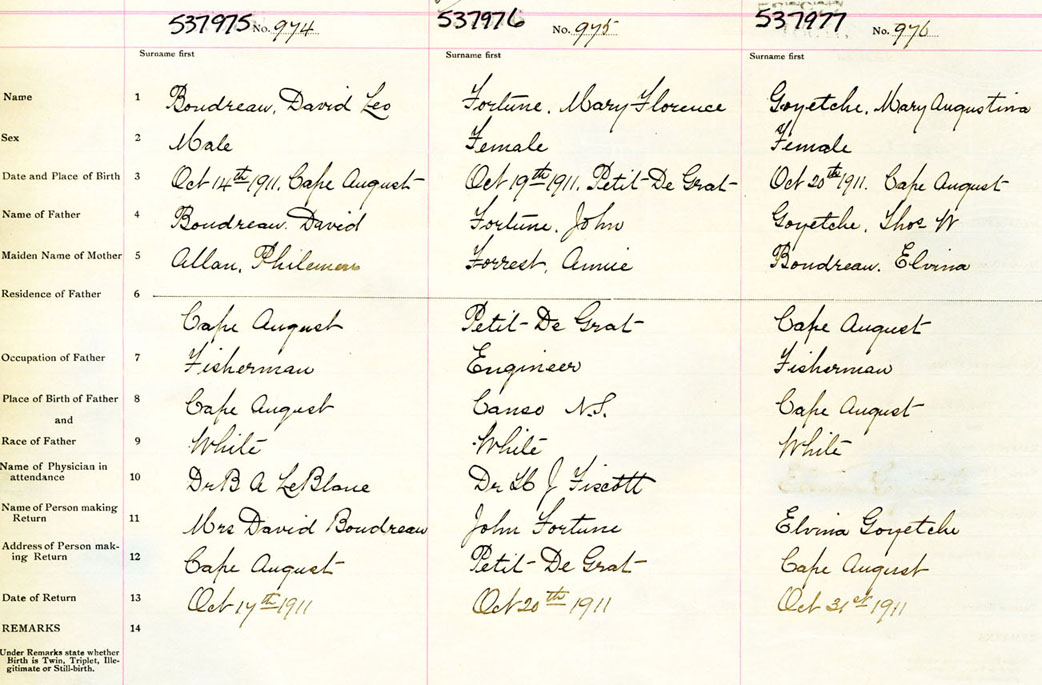 537975 No. 974 537976 No. 975 537977 No. 976
Surname first Surname first Surname first
Name 1 Boudreau, David Leo Fortune, Mary Florence Goyetche, Mary Augustina
Sex 2 Male Female Female
Date and Place of Birth 3 Oct 14th 1911, Cape August Oct 19th 1911, Petit-De Grat Oct 20th 1911. Cape August
Name of Father 4 Boudreau, David Fortune, John Goyetche, Thos W
Maiden Name of Mother 5 Allan, Forrest, Annie Boudreau, Elvina
Residence of Father 6
Cape August Petit-De Grat Cape August
Occupation of Father 7 Fisherman Engineer Fisherman
Place of Birth of Father 8 Cape August Canso N.S. Cape August
and
Race of Father 9 White White White
Name of Physician in
attendance 10 Dr B A LeBlanc Dr J Fiscott
Name of Person making
Return 11 Mrs David Boudreau John Fortune Elvina Goyetche
Address of Person mak-
ing Return 12 Cape August Petit-De Grat Cape August
Date of Return 13 Oct 17th 1911 Oct 20th 1911 Oct 31st 1911
REMARKS 14
Under Remarks state whether
Birth is Twin, Triplet, Ille-
gitimate or Still-birth.